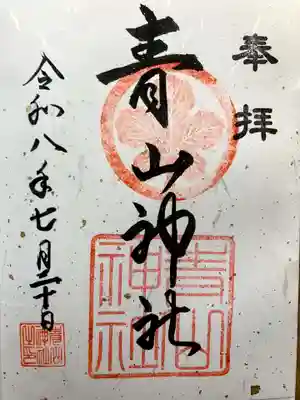 奉拝
青山神社
令和八年七月二十日
青山神社